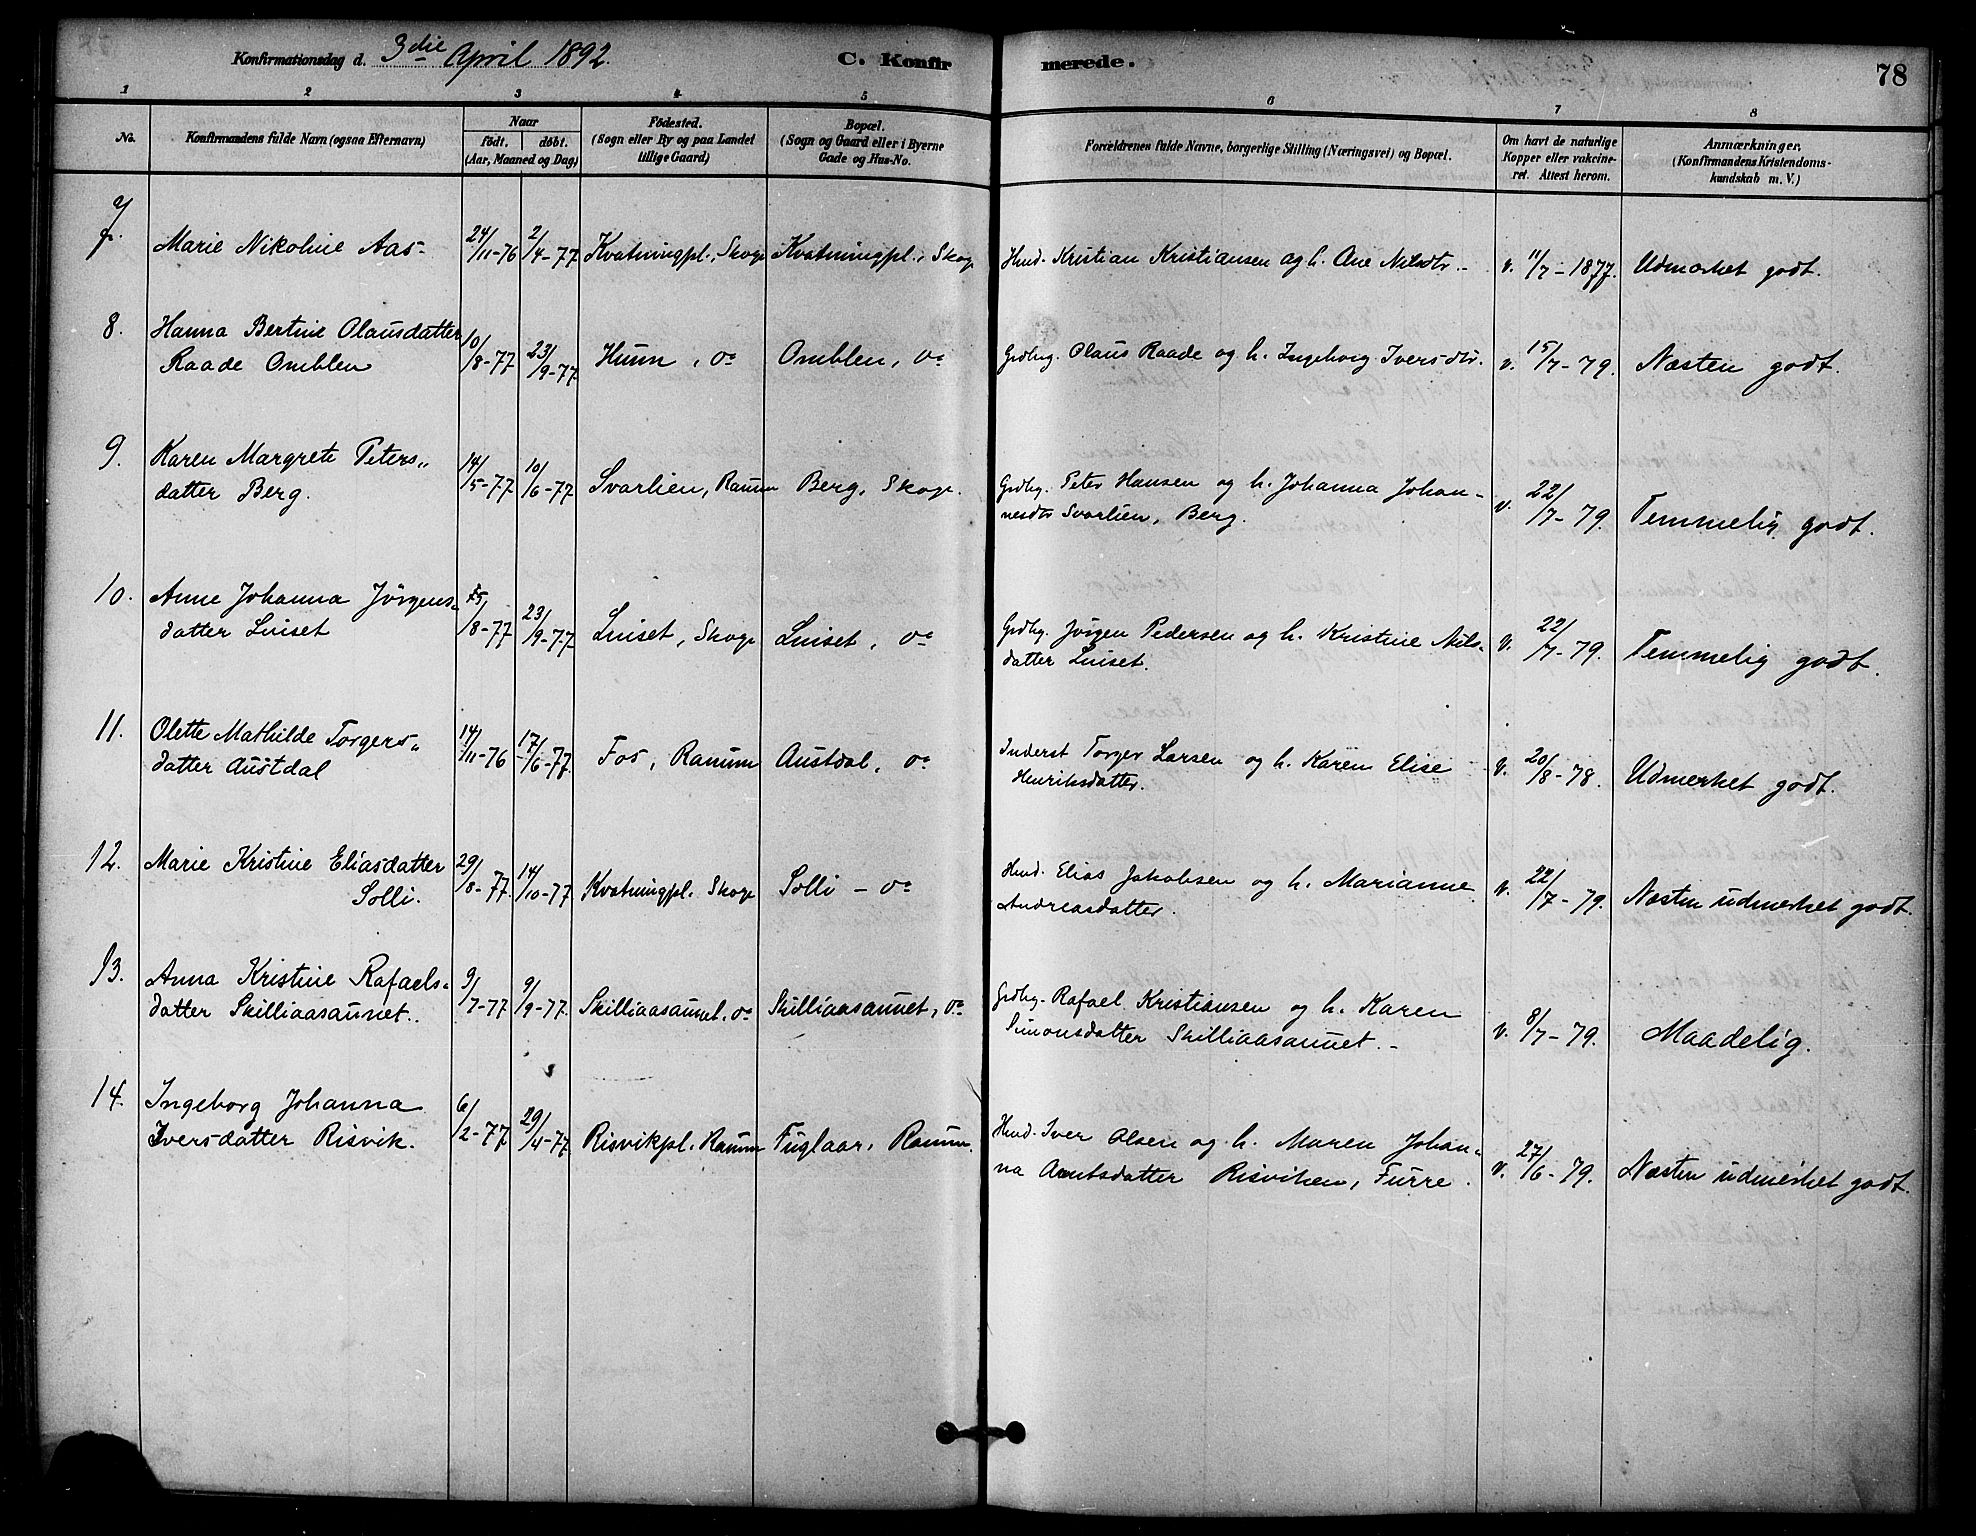 Konfirmationsdag d. 3die April 1892.
C. Konfirmerede.
78
1 2 3 4 5 6 7 8
No.
Konfirmandens fulde Navn (ogsaa Efternavn)
Naar
födt. döbt.
(Aar, Maaned og Dag)
Födested.
(Sogn eller By og paa Landet
tillige Gaard)
Bopæl.
(Sogn og Gaard eller i Byerne
Gade og Hus-No.
Forældrenes fulde Navne, borgerlige Stilling (Næringsvei) og Bopæl.
Om havt de naturlige
Kopper eller vakcine-
ret. Attest herom.
Anmærkninger.
(Konfirmandens Kristendoms-
kundskab m. V.)
7. Marie Nikoline Aas- 24/11-76 2/4-77 Kvatningpl., Skoge Kvatningpl., Skoge Husd. Kristian Kristiansen og h. Ane Nilsdtr. - v. 11/7-1877. Udmærket godt.
8. Hanna Bertine Olausdatter
Raade Omblen 10/8-77 23/9-77 Huun, do Omblen, do Grdbg. Olaus Raade og h. Ingeborg Iversdtr. v. 15/7-79. Næsten godt.
9. Karen Margrete Peters„
datter Berg. 14/5-77 10/6-77 Svarlien, Ranum Berg, Skoge. Grdbg. Peter Hansen og h. Johanna Johan-
nesdtr Svarlien, Berg. v. 22/7-79. Temmelig godt.
10. Anne Johanna Jörgens-
datter Luiset /8-77 23/9-77 Luiset, Skoge Luiset, do Grdbg. Jörgen Pedersen og h. Kristine Nils-
datter Luiset. v. 22/7-79. Temmelig godt.
11. Olette Mathilde Torgers„
datter Austdal 14/11-76 17/6-77 Fos, Ranum Austdal, do Inderst Torger Larsen og h. Karen Elise
Henriksdatter. v. 20/8-78. Udmerket godt.
12. Marie Kristine Eliasdatter
Solli. 29/8-77. 14/10-77 Kvatningpl. Skoge Solli - do Husd. Elias Jakobsen og h. Marianne
Andreasdatter. v. 22/7-79. Næsten udmerket godt.
13. Anna Kristine Rafaels-
datter Skilliaasaunet. 9/7-77 9/9-77. Skilliaasaunet, do Skilliaasaunet, do Grdbg. Rafael Kristiansen og h. Karen
Simonsdatter Skilliaasaunet. - v. 8/7-79. Maadelig.
14. Ingeborg Johanna
Iversdatter Risvik. 6/2-77 29/4-77 Risvikpl. Ranum Fuglaar, Ranum. Husd. Iver Olsen og h. Maren Johan-
na Arntsdatter Risviken, Furre. v. 27/6-79. Næsten udmerket godt.